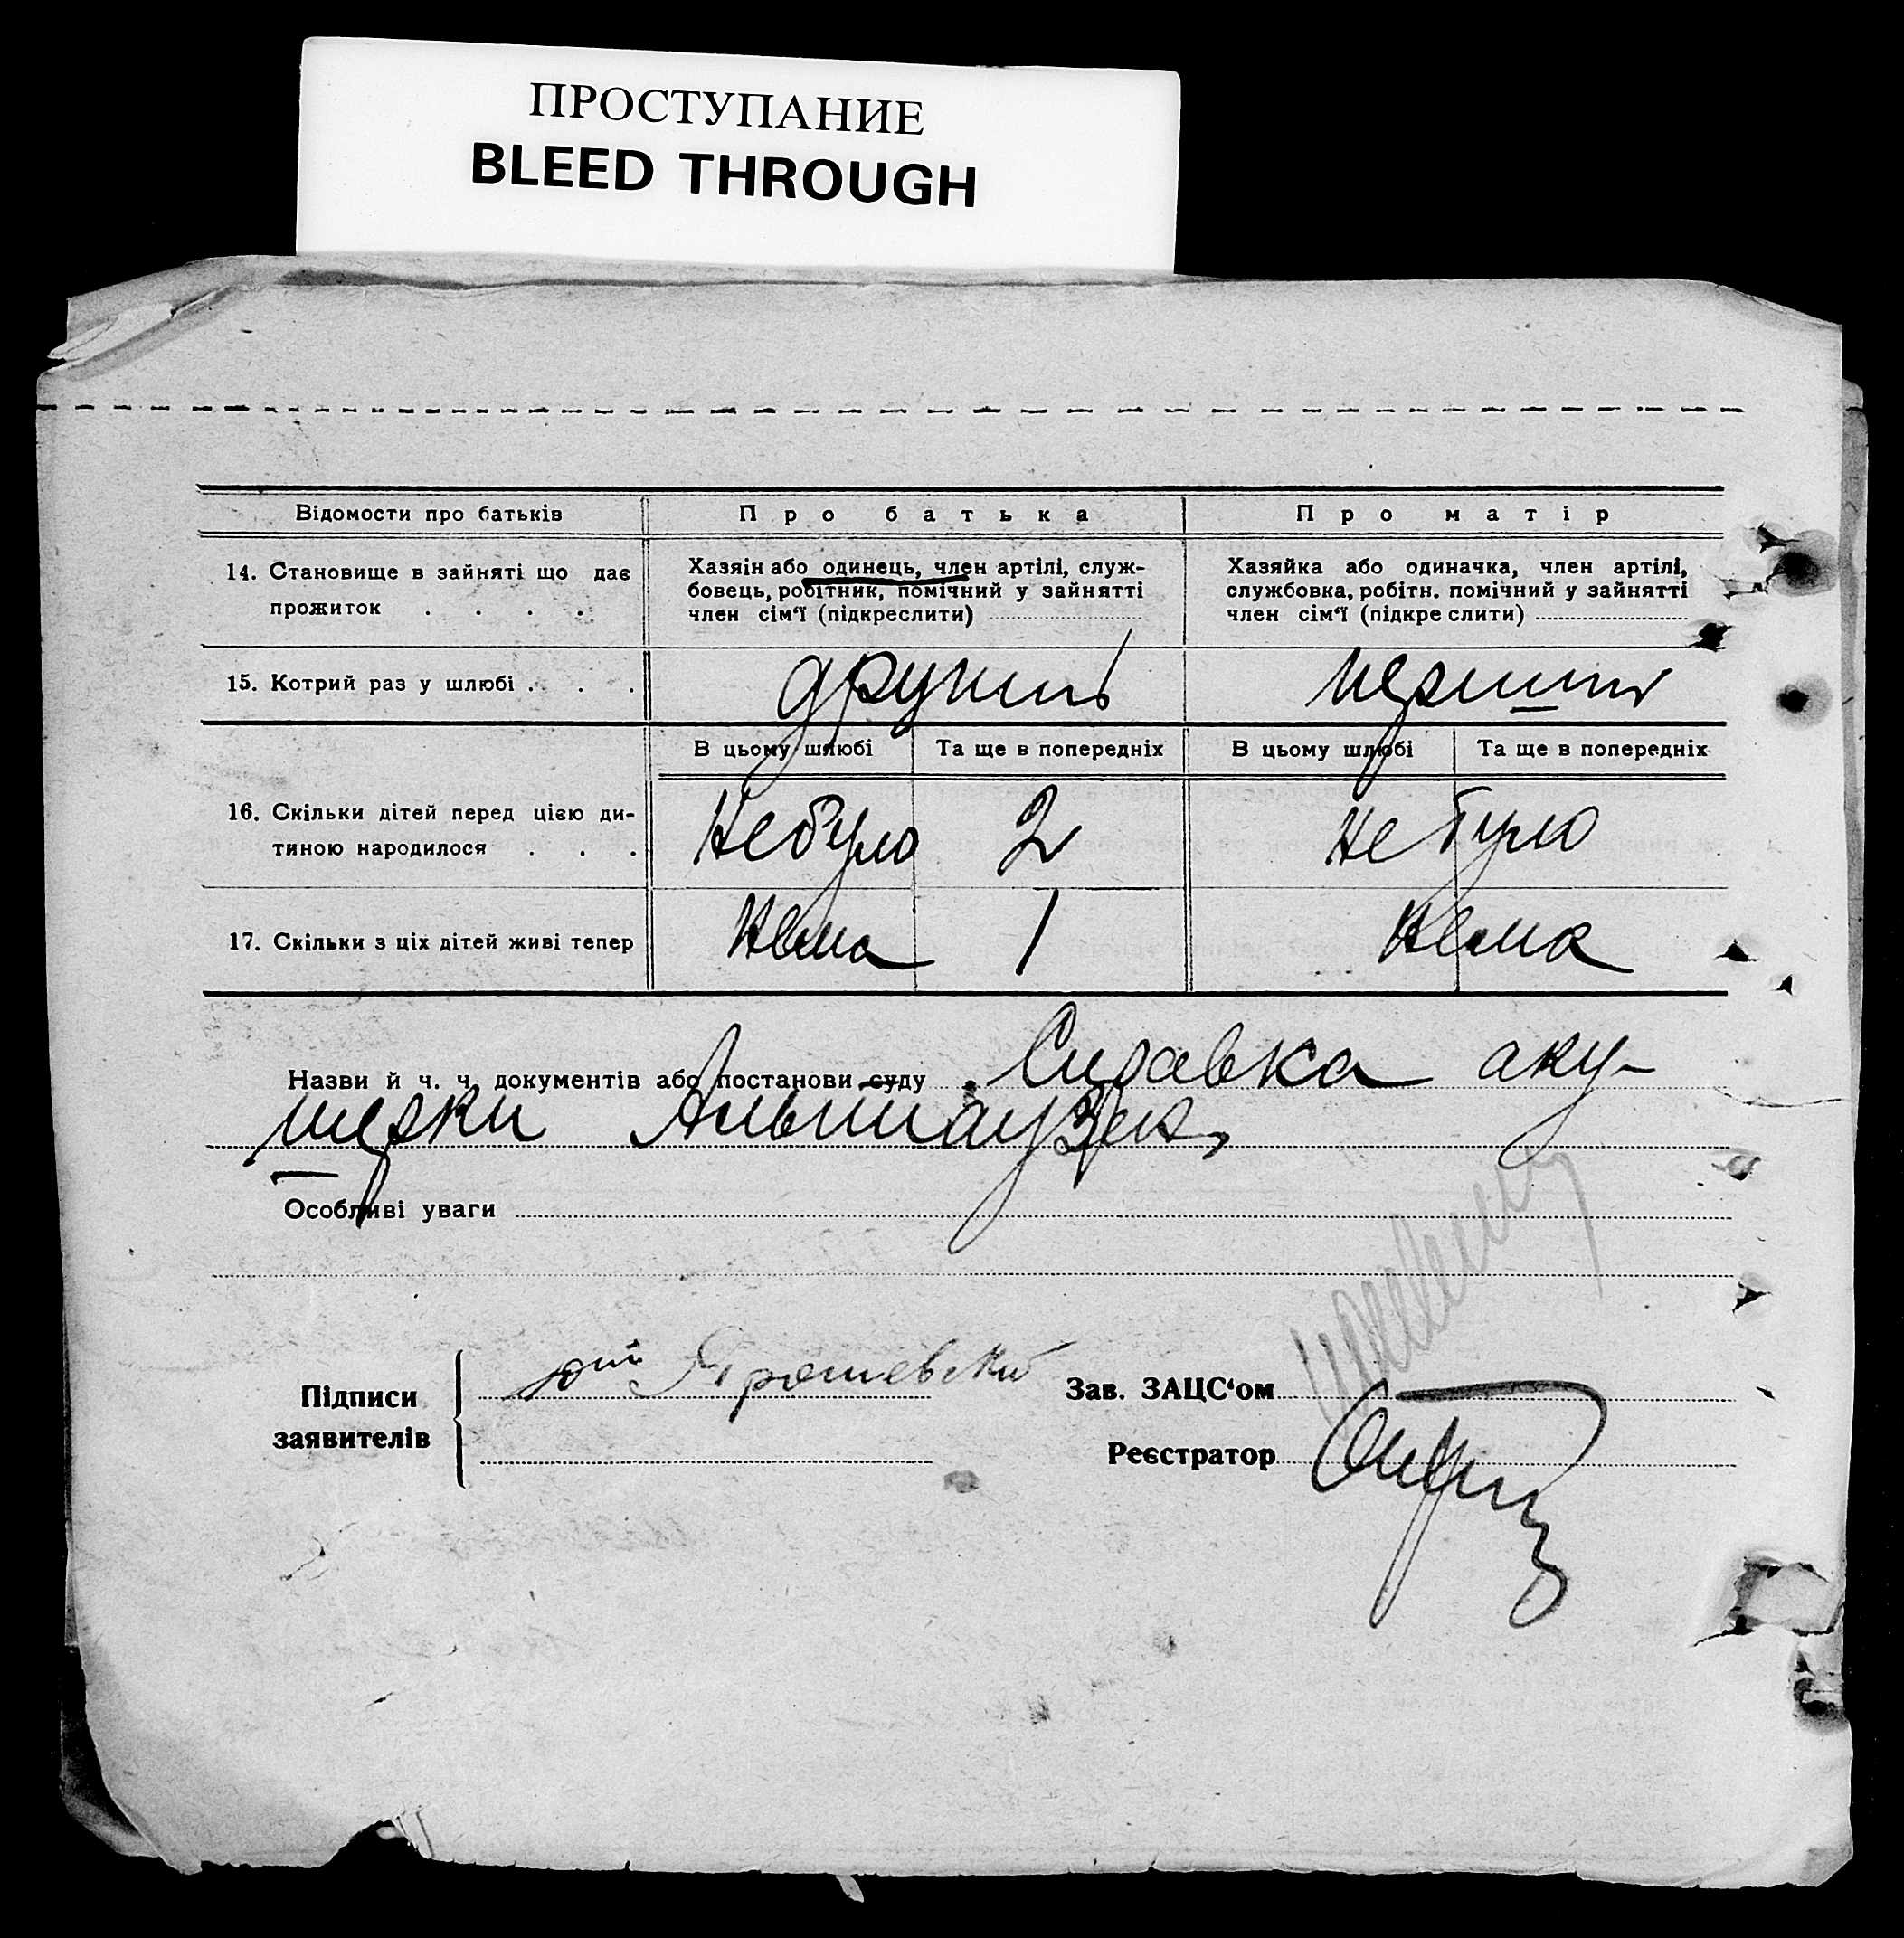 ПРОСТУПАНИЕ
BLEED THROUGH
Відомости про батьків Про батька Про матір
14. Становище в зайняті що дає прожиток . . . .
Хазяін або одинець, член артілі, служ-
бовець, робітник, помічний у зайнятті
член сім‘ї (підкреслити)
Хазяйка або одиначка, член артілі,
службовка, робітн. помічний у зайнятті
член сім‘ї (підкре слити)
15. Котрий раз у шлюбі . . . другий перший
В цьому шлюбі Та ще в попередніх В цьому шлюбі Та ще в попередніх
16. Скільки дітей перед цією ди-
тиною народилося . . . Не було 2 Не було
17. Скільки з ціх дітей живі тепер Нема 1 Нема
Назви й ч. ч. документів або постанови суду Справка аку-
шерки
Особливі уваги
Підписи
заявителів
Зав. ЗАЦС‘ом
Реєстратор